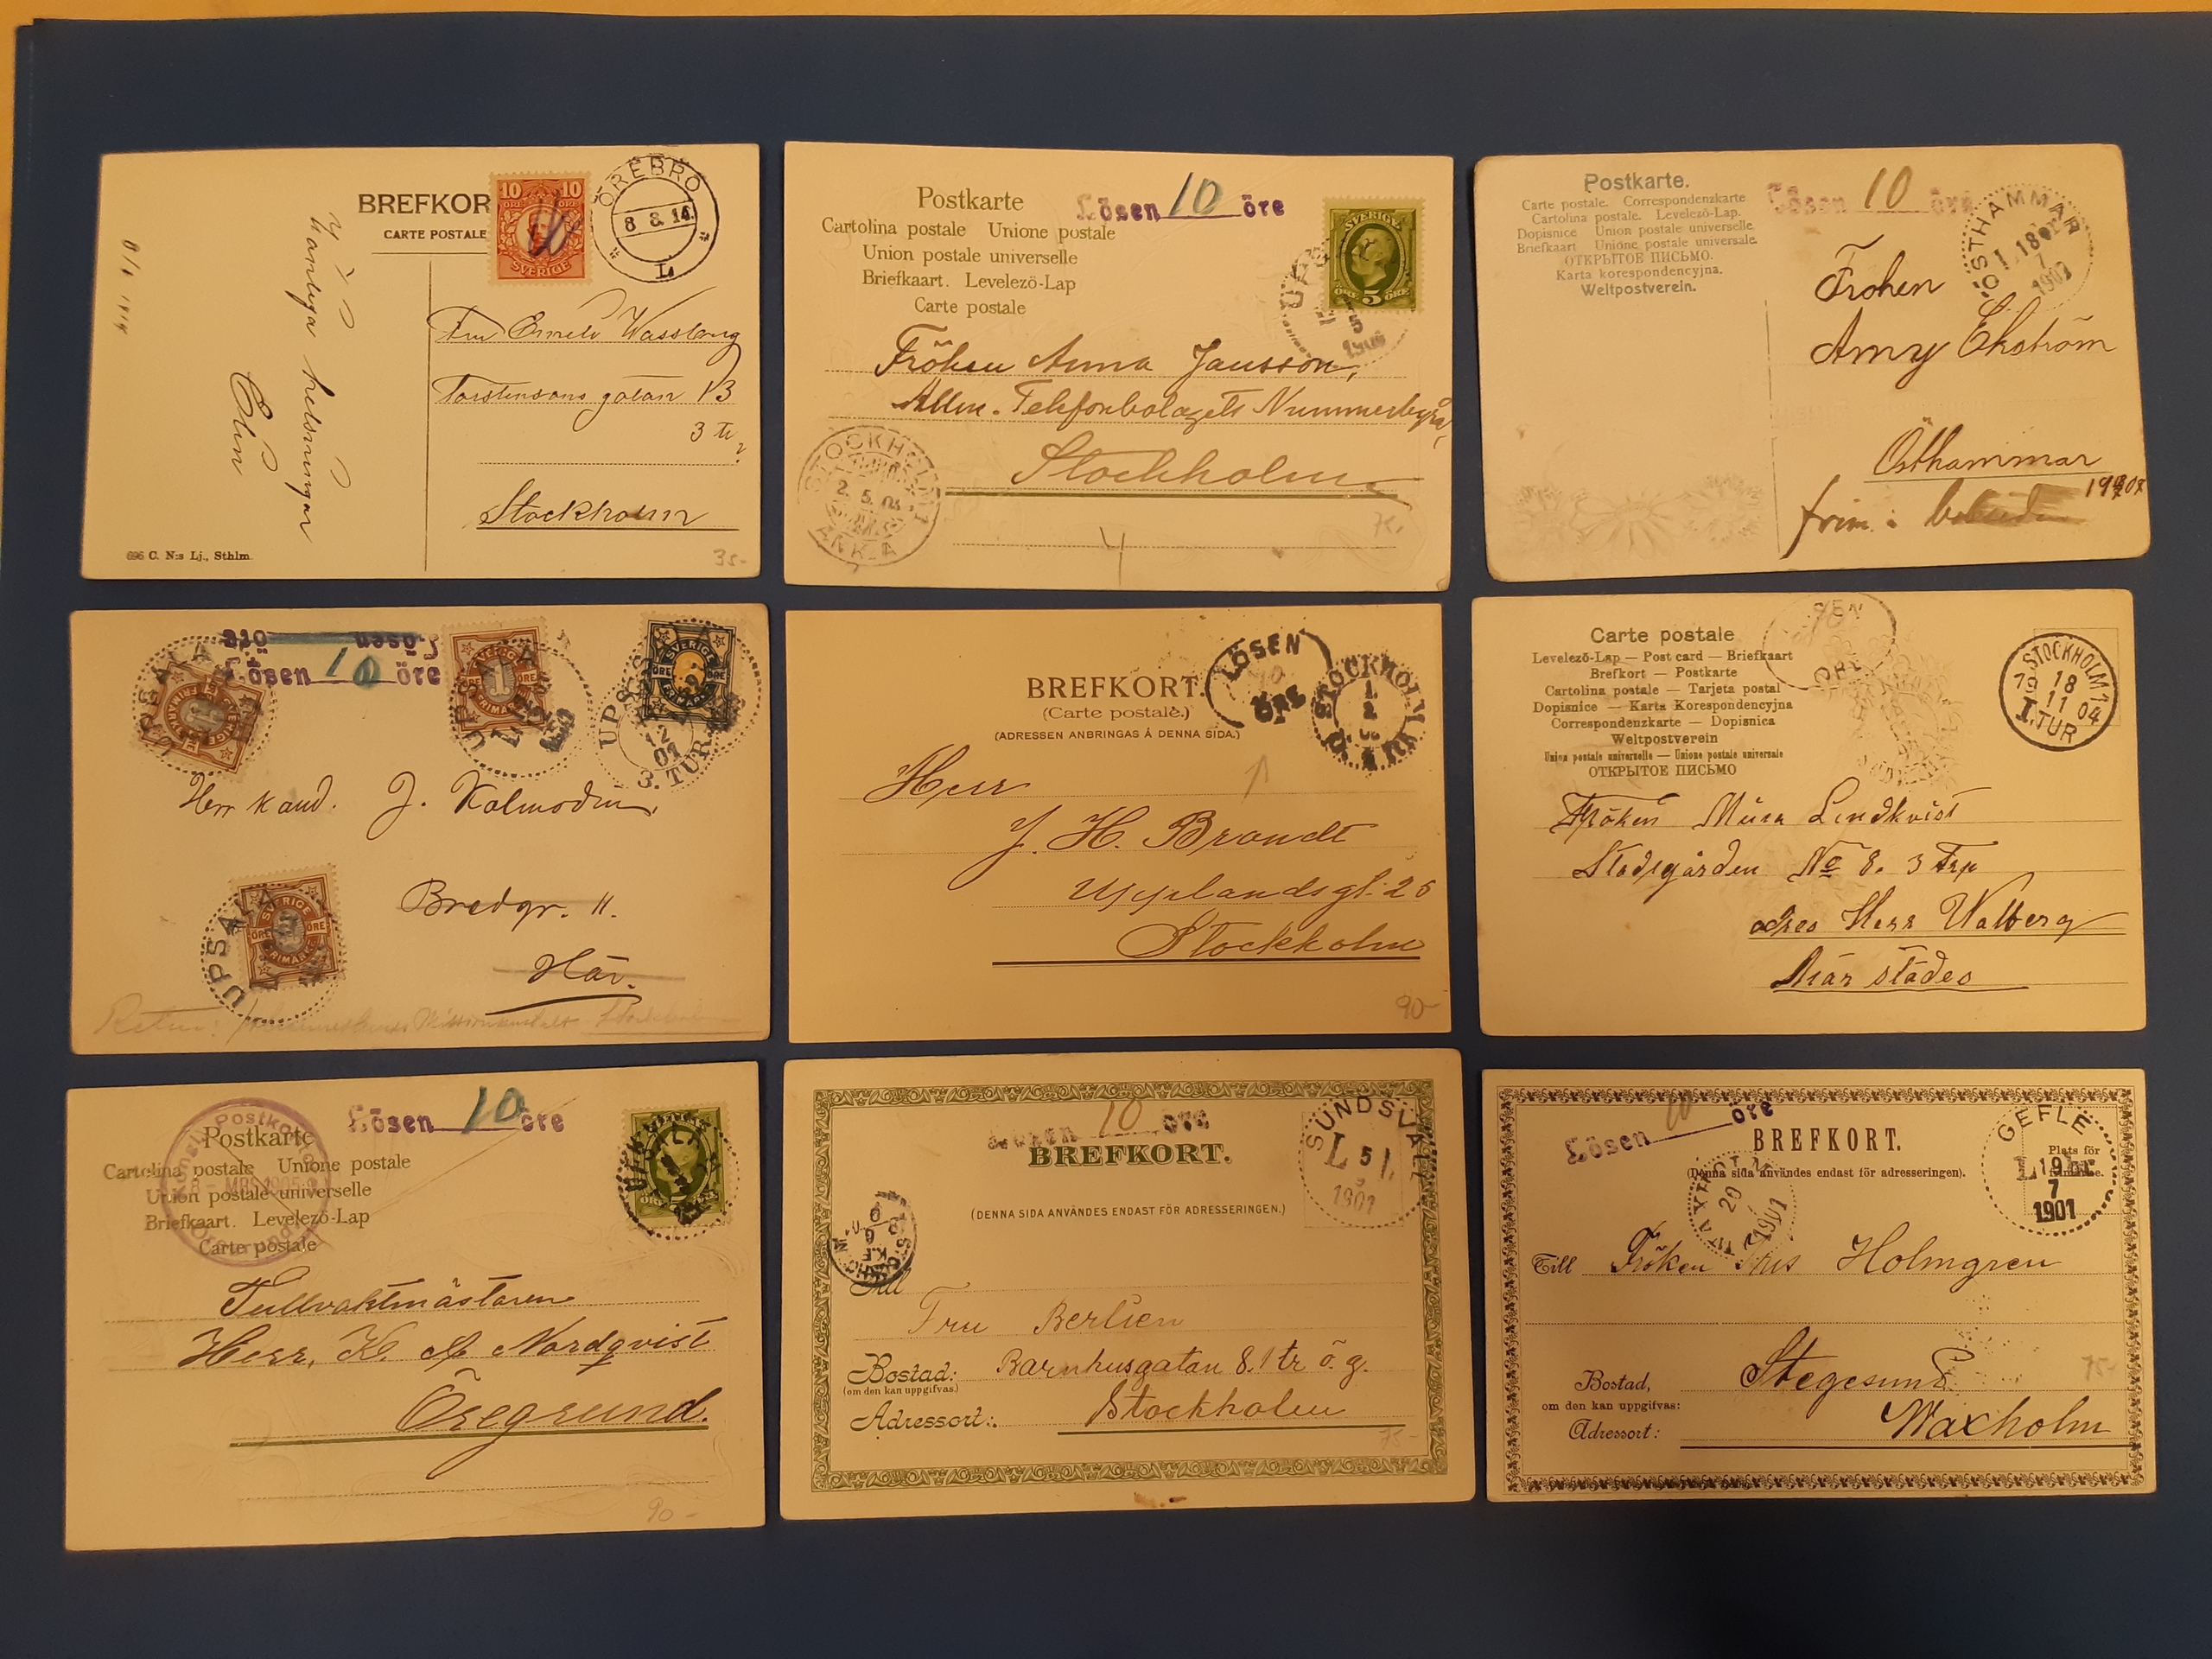 BREFKOR
CARTE POSTALE
10 10
ÖRE ÖRE
SVERIGE
ÖREBRO
8 8 14
L
hälsningar
Elin
Fru Wassberg
13
3 tr
Stockholm
696 C. N:s Lj., Sthlm.
35-
Postkarte
Lösen 10 öre
Cartolina postale Unione postale
Union postale universelle
Briefkaart. Levelező-Lap
Carte postale
SVERIGE
ÖRE 5 ÖRE
5
Fröken Anna Jansson,
Allm. Telefonbolagets
Stockholm
STOCKHOLM 1
2. 5. 04
ANK. A
4
Postkarte.
Carte postale. Correspondenzkarte
Cartolina postale. Levelező-Lap.
Dopisnice Union postale universelle
Briefkaart Unione postale universale
ОТКРЫТОЕ ПИСЬМО.
Karta korespondencyjna.
Weltpostverein.
Lösen 10 öre
ÖSTHAMMAR
7
Fröken
Amy Ekström
Östhammar
frim. i
Lösen öre
Lösen 10 öre
UPSALA
UPSALA
UPSALA
12
07
3. TUR
SVERIGE
ÖRE ÖRE
FRIMÄRKE
Herr kand. J. Kolmodin,
Bredgr. 11.
Här.
UPSALA
SVERIGE
ÖRE ÖRE
FRIMÄRKE
Retur: Stockholm
BREFKORT.
(Carte postale.)
(ADRESSEN ANBRINGAS Å DENNA SIDA.)
LÖSEN
10
ÖRE
STOCKHOLM
Herr
J. H. Brandt
Upplandsgt. 25
Stockholm
90-
Carte postale
Levelező-Lap — Post card — Briefkaart
Brefkort — Postkarte
Cartolina postale — Tarjeta postal
Dopisnice — Karta Korespondencyjna
Correspondenzkarte — Dopisnica
Weltpostverein
Union postale universelle — Unione postale universale
ОТКРЫТОЕ ПИСЬМО
STOCKHOLM 1
18
11 04
1. TUR
Fröken Lindkvist
Stadsgården No 8. 3 Trp
Herr Walberg
Här städes
Kongl. Postkontor
MRS 1905
Öregrund
Postkarte
Lösen 10 öre
Cartolina postale Unione postale
Union postale universelle
Briefkaart. Levelező-Lap
Carte postale
Tullvaktmästaren
Herr. Nordqvist
Öregrund.
90-
10 öre
BREFKORT.
(DENNA SIDA ANVÄNDES ENDAST FÖR ADRESSERINGEN.)
SUNDSVALL
L 5
1901
Till
Fru Berlien
Bostad: Barnhusgatan 8. 1 tr ö. g.
(om den kan uppgifvas.)
Adressort: Stockholm
75-
Lösen 10 öre
BREFKORT.
(Denna sida användes endast för adresseringen).
Plats för
GEFLE
L 19
7
1901
20
1901
Till Fröken Holmgren
Bostad, Stegesund
om den kan uppgifvas:
Adressort: Waxholm
75-